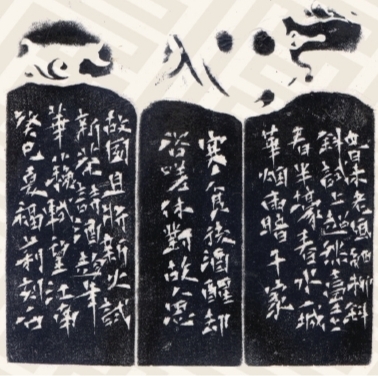 春未老風細柳斜
斜試上超然臺上
看半壕春水一城
華烟雨暗千家
寒食後酒醒却
咨嗟休對故人思
故國且將新火試
新茶詩酒趁年
華蘇軾望江南
癸巳夏福莉刻石